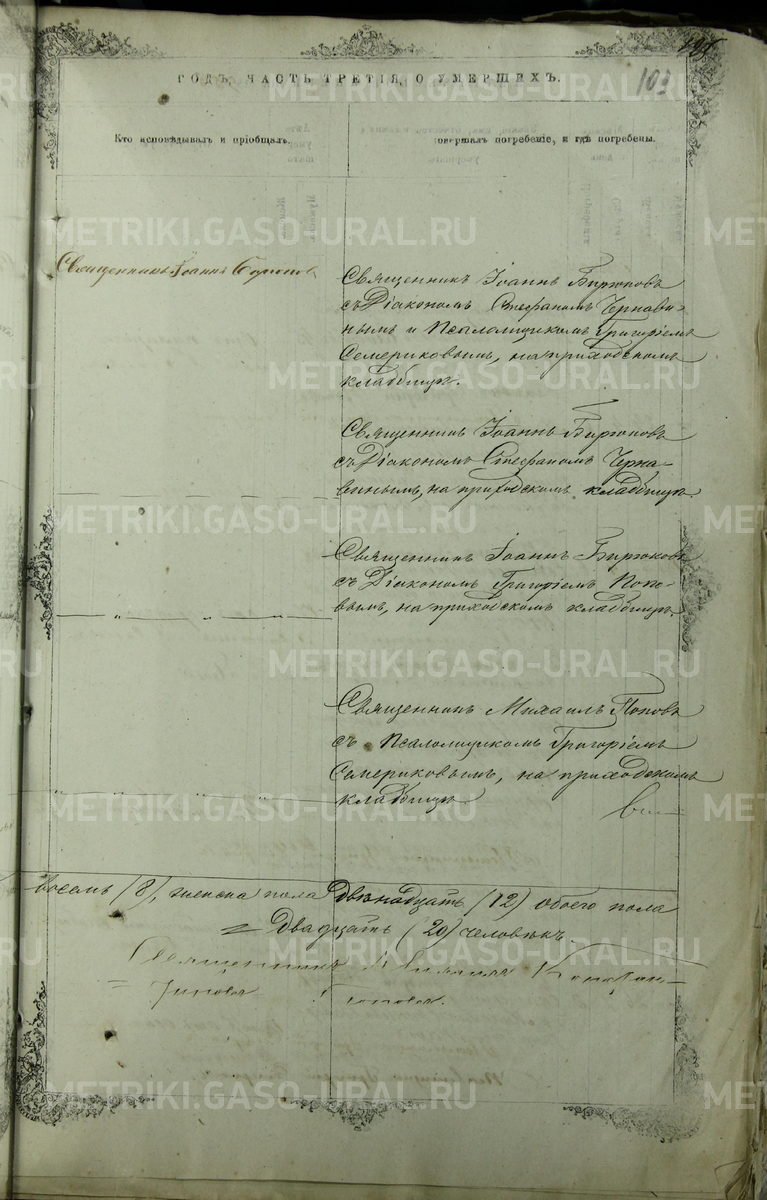 103
ГОДЪ, ЧАСТЬ ТРЕТІЯ, О УМЕРШИХЪ.
Кто исповѣдывалъ и пріобщалъ.
совершалъ погребеніе, и гдѣ погребены.
METRIKI.GASO-URAL.RU
Священникъ Іоаннъ
Священникъ Іоаннъ Бирюковъ
съ Діакономъ Стефаномъ Чернави-
нымъ и Псаломщикомъ Григоріемъ
Семериковымъ, на приходскомъ
кладбищѣ.
Священникъ Іоаннъ Бирюковъ
съ Діакономъ Стефаномъ Черна-
винымъ, на приходскомъ кладбищѣ.
Священникъ Іоаннъ Бирюковъ
съ Діакономъ Григоріемъ Попо-
вымъ, на приходскомъ кладбищѣ.
Священникъ Михаилъ Поповъ
съ Псаломщикомъ Григоріемъ
Семериковымъ, на приходскомъ
кладбищѣ
восемь (8), женска пола двѣнадцать (12) обоего пола
= двадцать (20) человѣкъ.
Священникъ